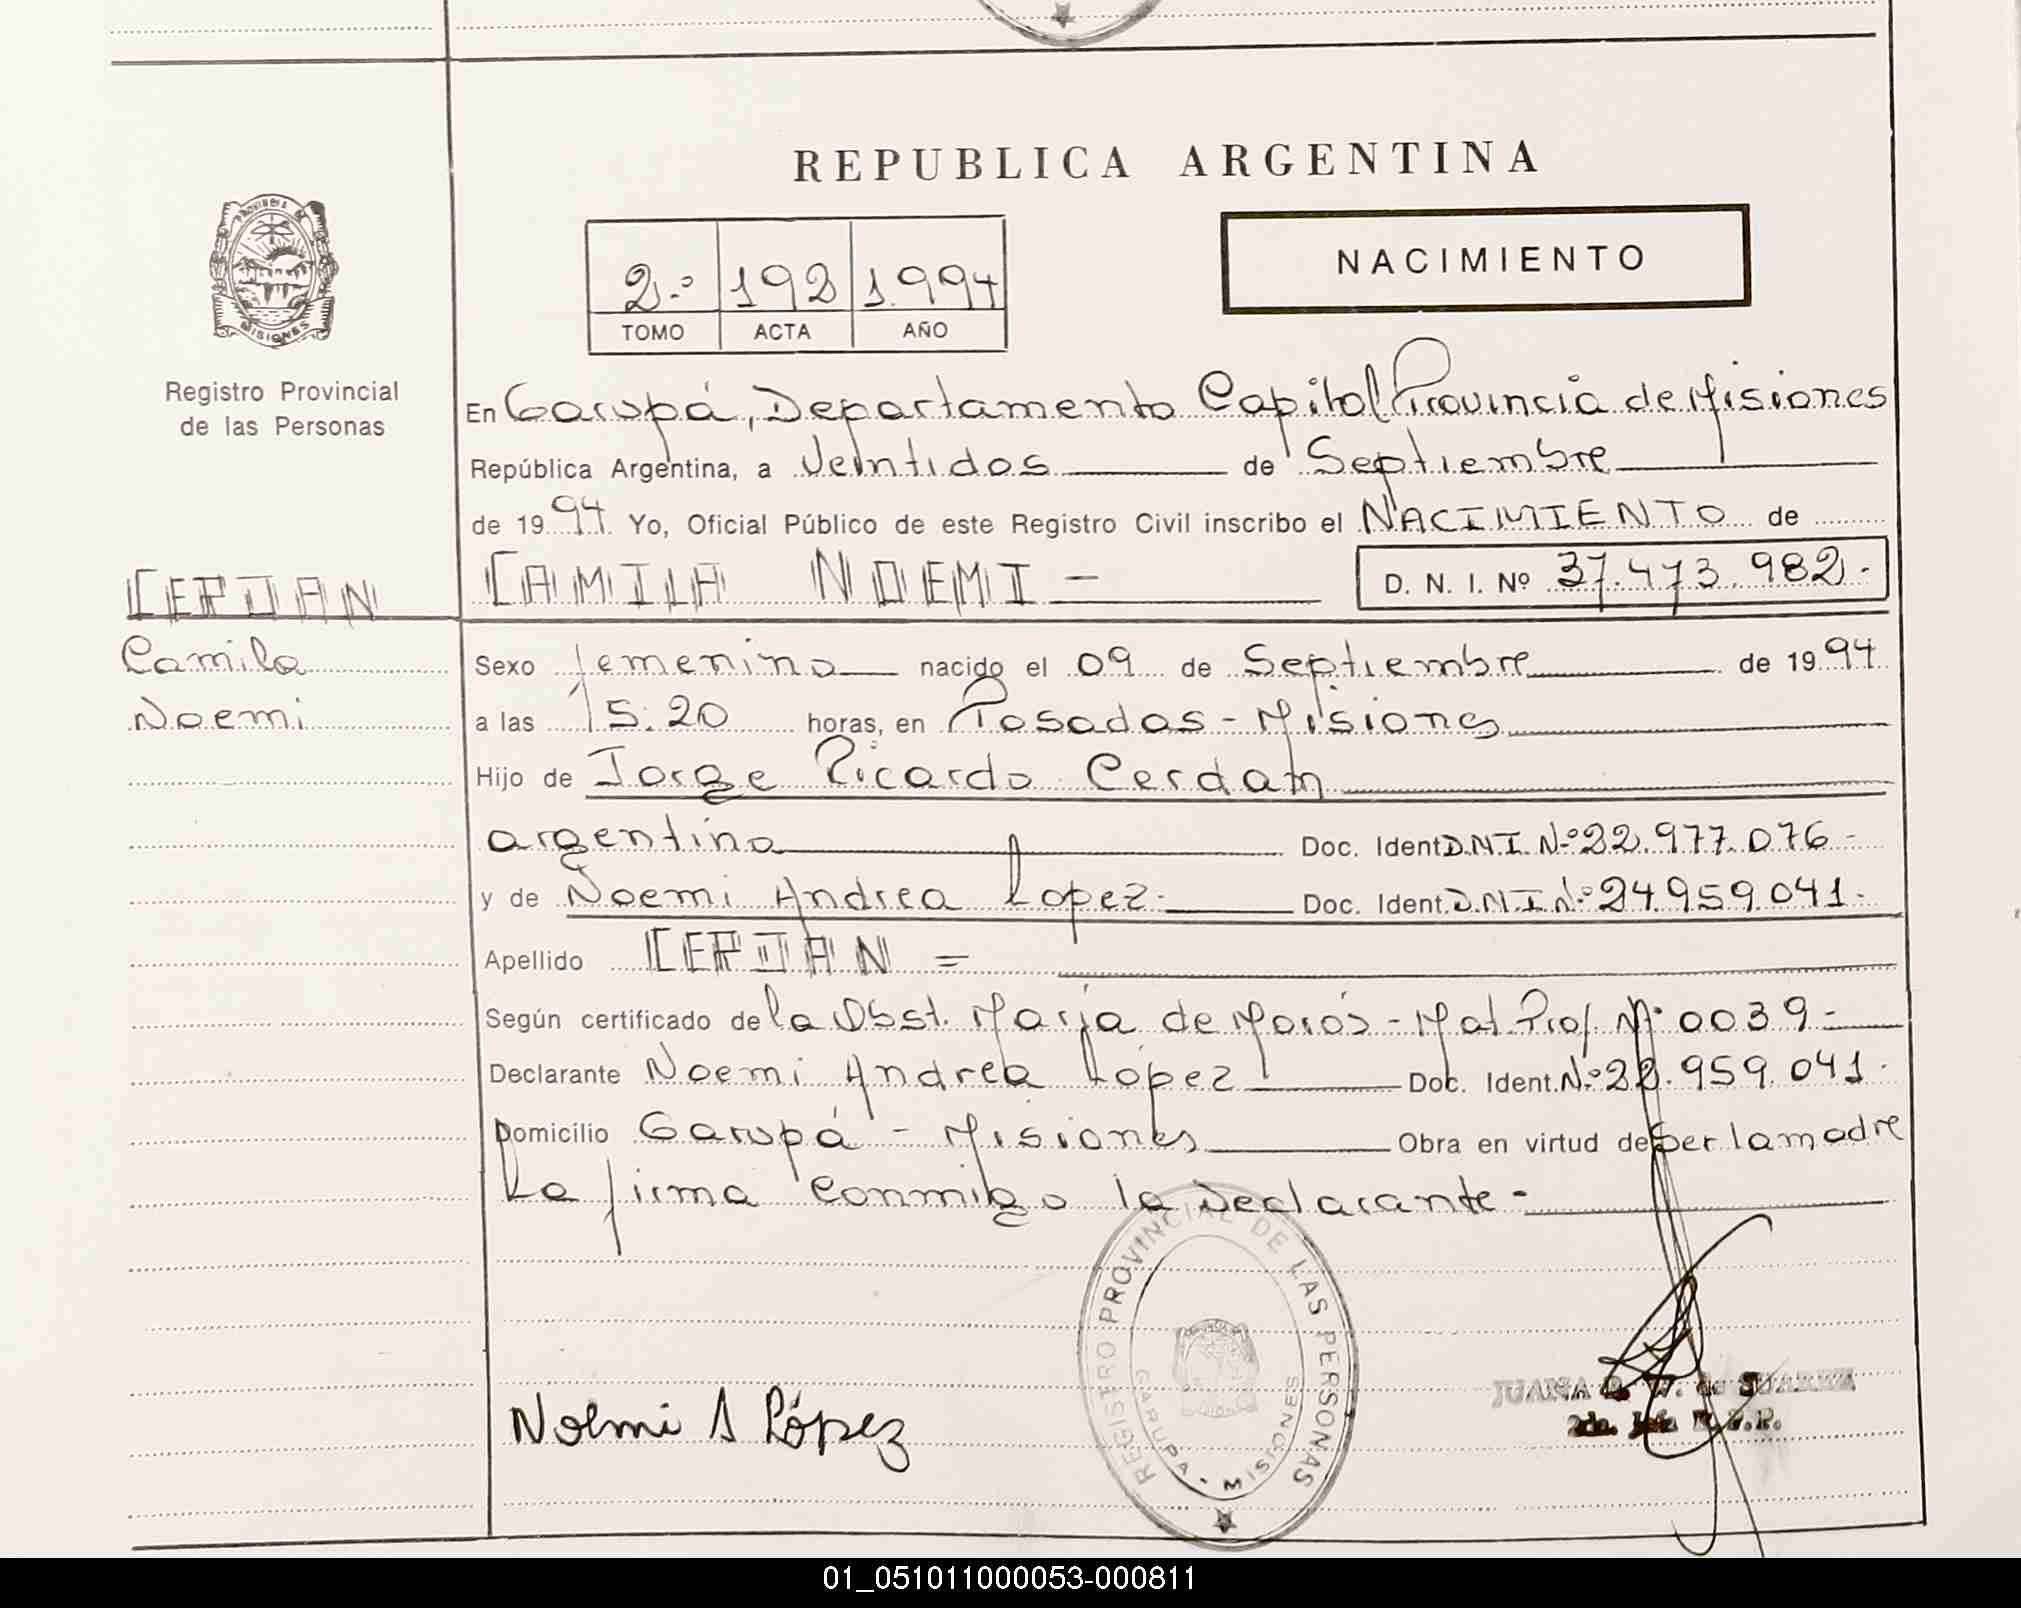 REPUBLICA ARGENTINA
PROVINCIA DE
MISIONES
Registro Provincial
de las Personas
2.º 192 1.994
TOMO ACTA AÑO
NACIMIENTO
En Garupá, Departamento Capital Provincia de Misiones
República Argentina, a Veintidos de Septiembre
de 1994 Yo, Oficial Público de este Registro Civil inscribo el NACIMIENTO de
CERDAN
CAMILA NOEMI -
D. N. I. Nº 37.473.982.-
Camila
Noemi
Sexo femenino nacido el 09 de Septiembre de 1994
a las 15:20 horas, en Posadas - Misiones
Hijo de Jorge Ricardo Cerdan
argentino Doc. Ident D.N.I. Nº 22.977.076 -
y de Noemi Andrea Lopez - Doc. Ident. D.N.I. Nº 24.959.041.-
Apellido CERDAN =
Según certificado de la Obst. Maria de - Mat. Prof. Nº 0039 -
Declarante Noemi Andrea López Doc. Ident. Nº .959.041.
Domicilio Garupá - Misiones Obra en virtud de ser la madre
La firma conmigo la Declarante -
REGISTRO PROVINCIAL DE LAS PERSONAS
GARUPA - MISIONES
Noemi A López
JUANA de SUAREZ
2da. Jefa
01_051011000053-000811